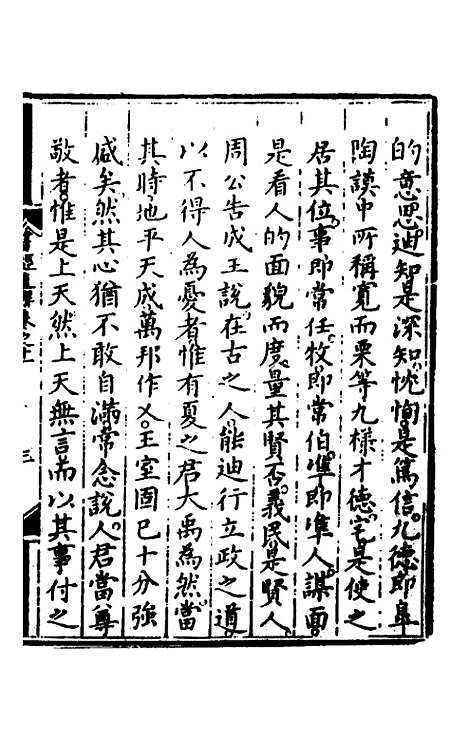 的意思迪知是深知忱恂是篤信九德即皐
陶謨中所稱寬而栗等九樣才德宅是使之
居其位事即常任牧即常伯準即準人謀面
是看人的面貌而度量其賢否義民是賢人
周公告成王說在古之人能迪行立政之道
以不得人為憂者惟有夏之君大禹為然當
其時地平天成萬邦作乂王室固已十分強
盛矣然其心猶不敢自滿常念說人君當尊
敬者惟是上天然上天無言而以其事付之
書經直解卷之十
三